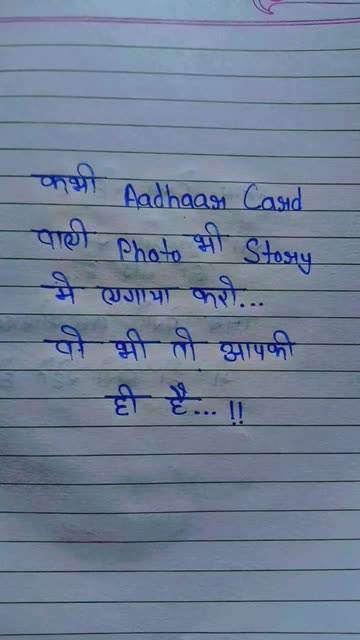 कभी Aadhaar Card
वाली Photo भी Story
मे लगाया करो...
वो भी तो आपकी
ही है...!!